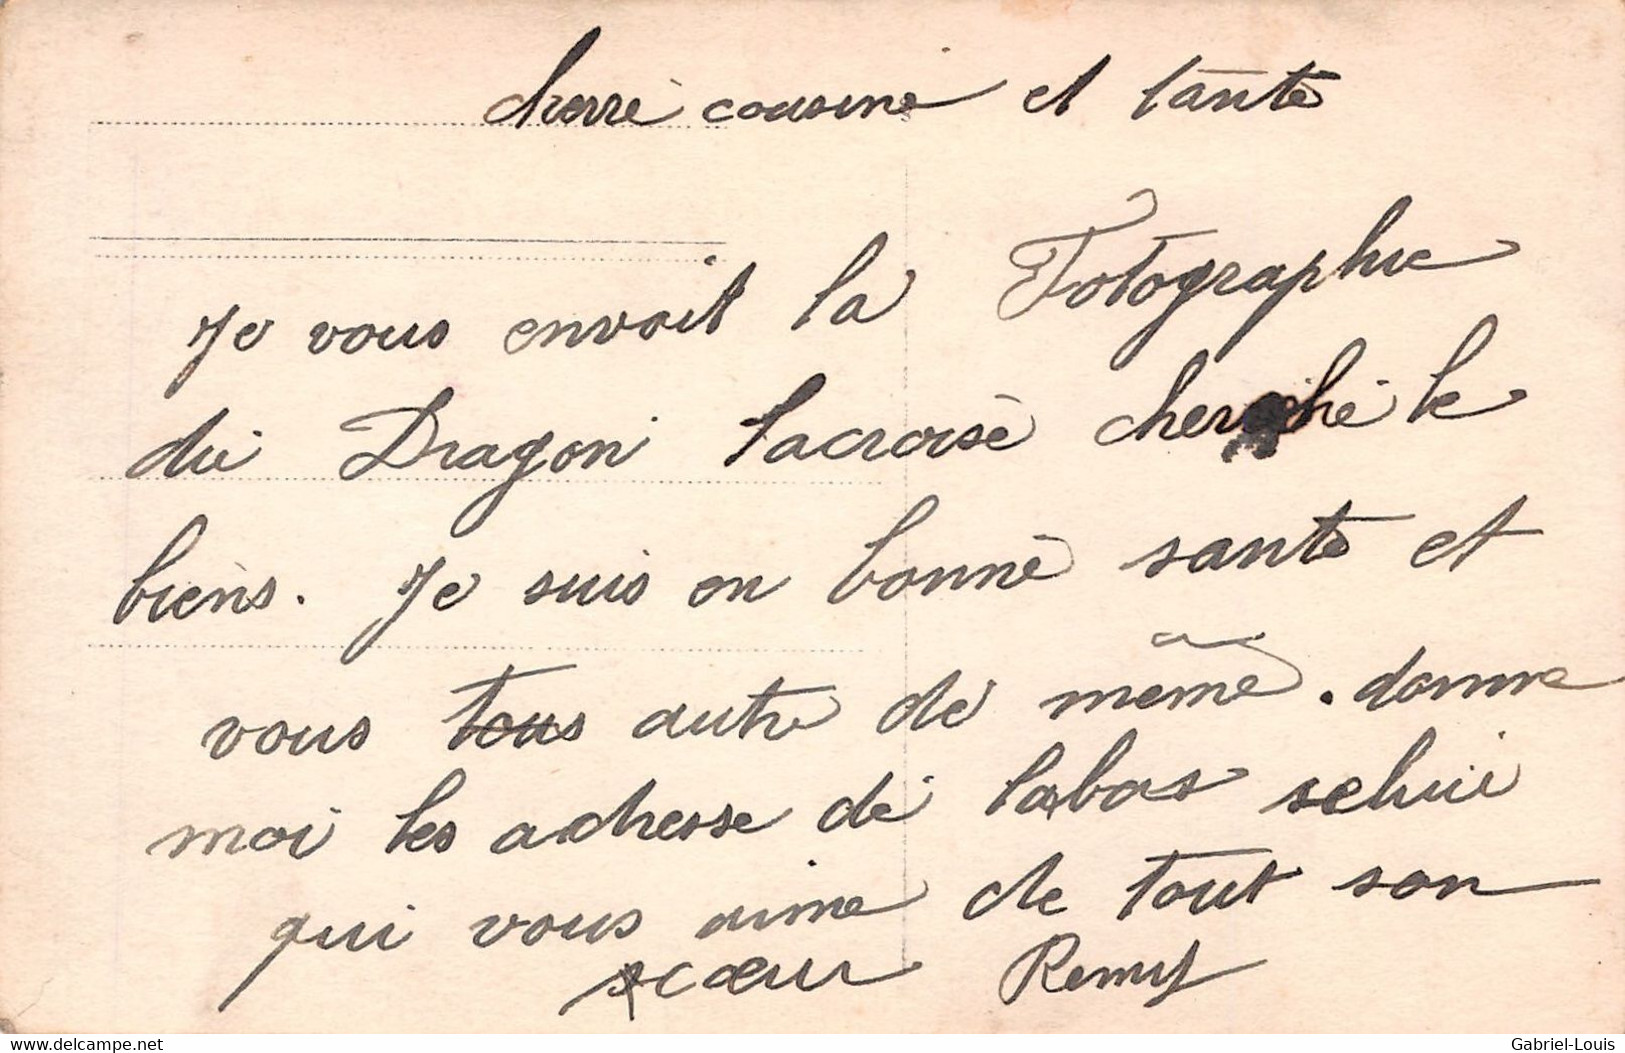 cherre cousine et tante
Je vous envoit la Fotographie
du Dragon lacroisè cherché le
biens. Je suis en bonne sante et
vous tous autre de même. donne
moi les adresse de labas selui
qui vous aime de tout son
scœur Remy
delcampe.net
Gabriel-Louis